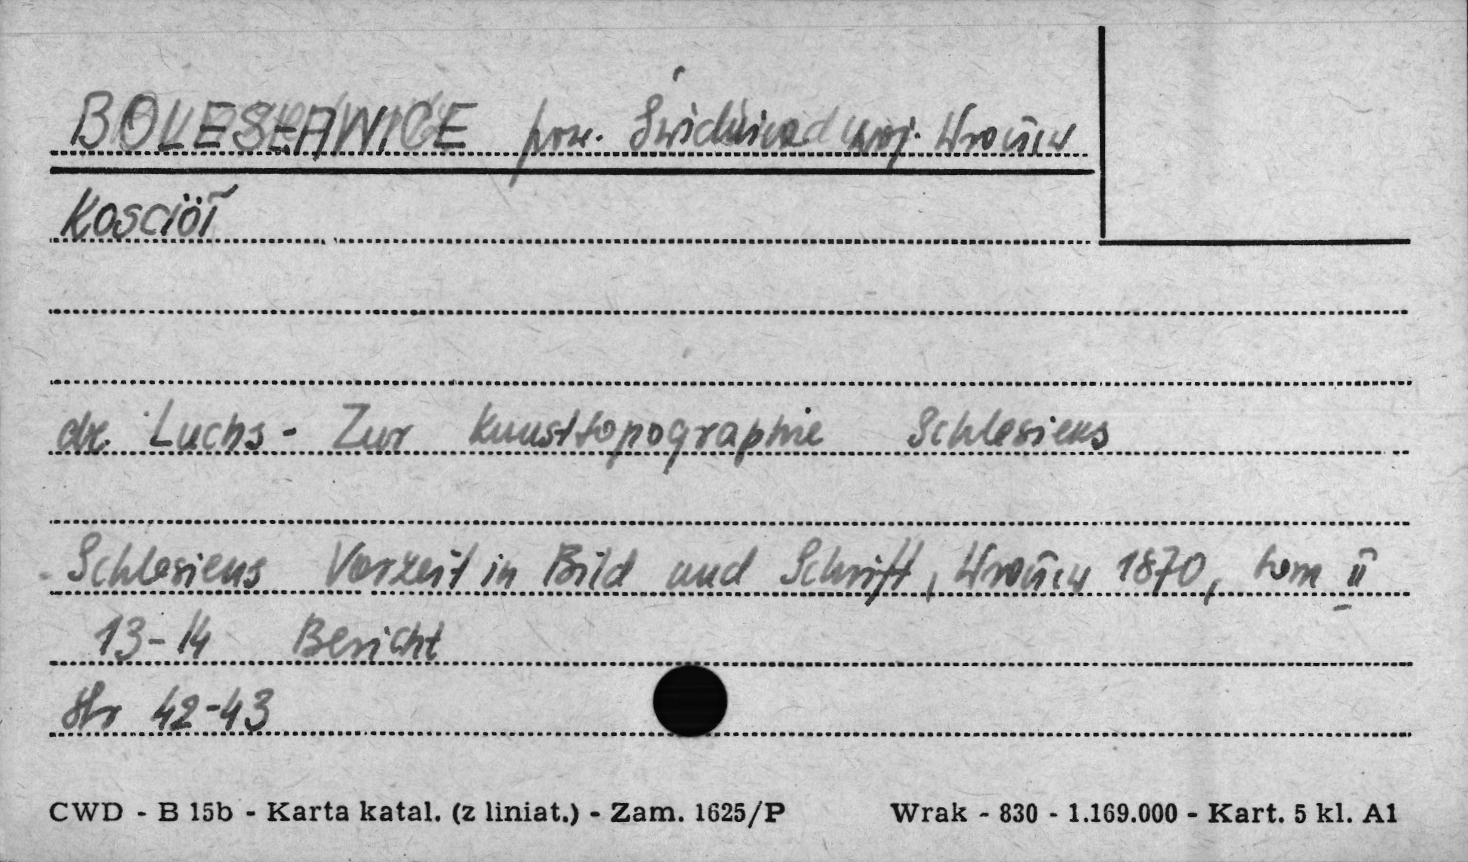 BOLESŁAWICE pow. Świdnica woj. Wrocław
Kościół
dr. Luchs - Zur Kunsttopographie Schlesiens
Schlesiens Vorzeit in Bild und Schrift, Wrocław 1870, tom II
13-14 Bericht
str 42-43
CWD - B 15b - Karta katal. (z liniat.) - Zam. 1625/P Wrak - 830 - 1.169.000 - Kart. 5 kl. A1